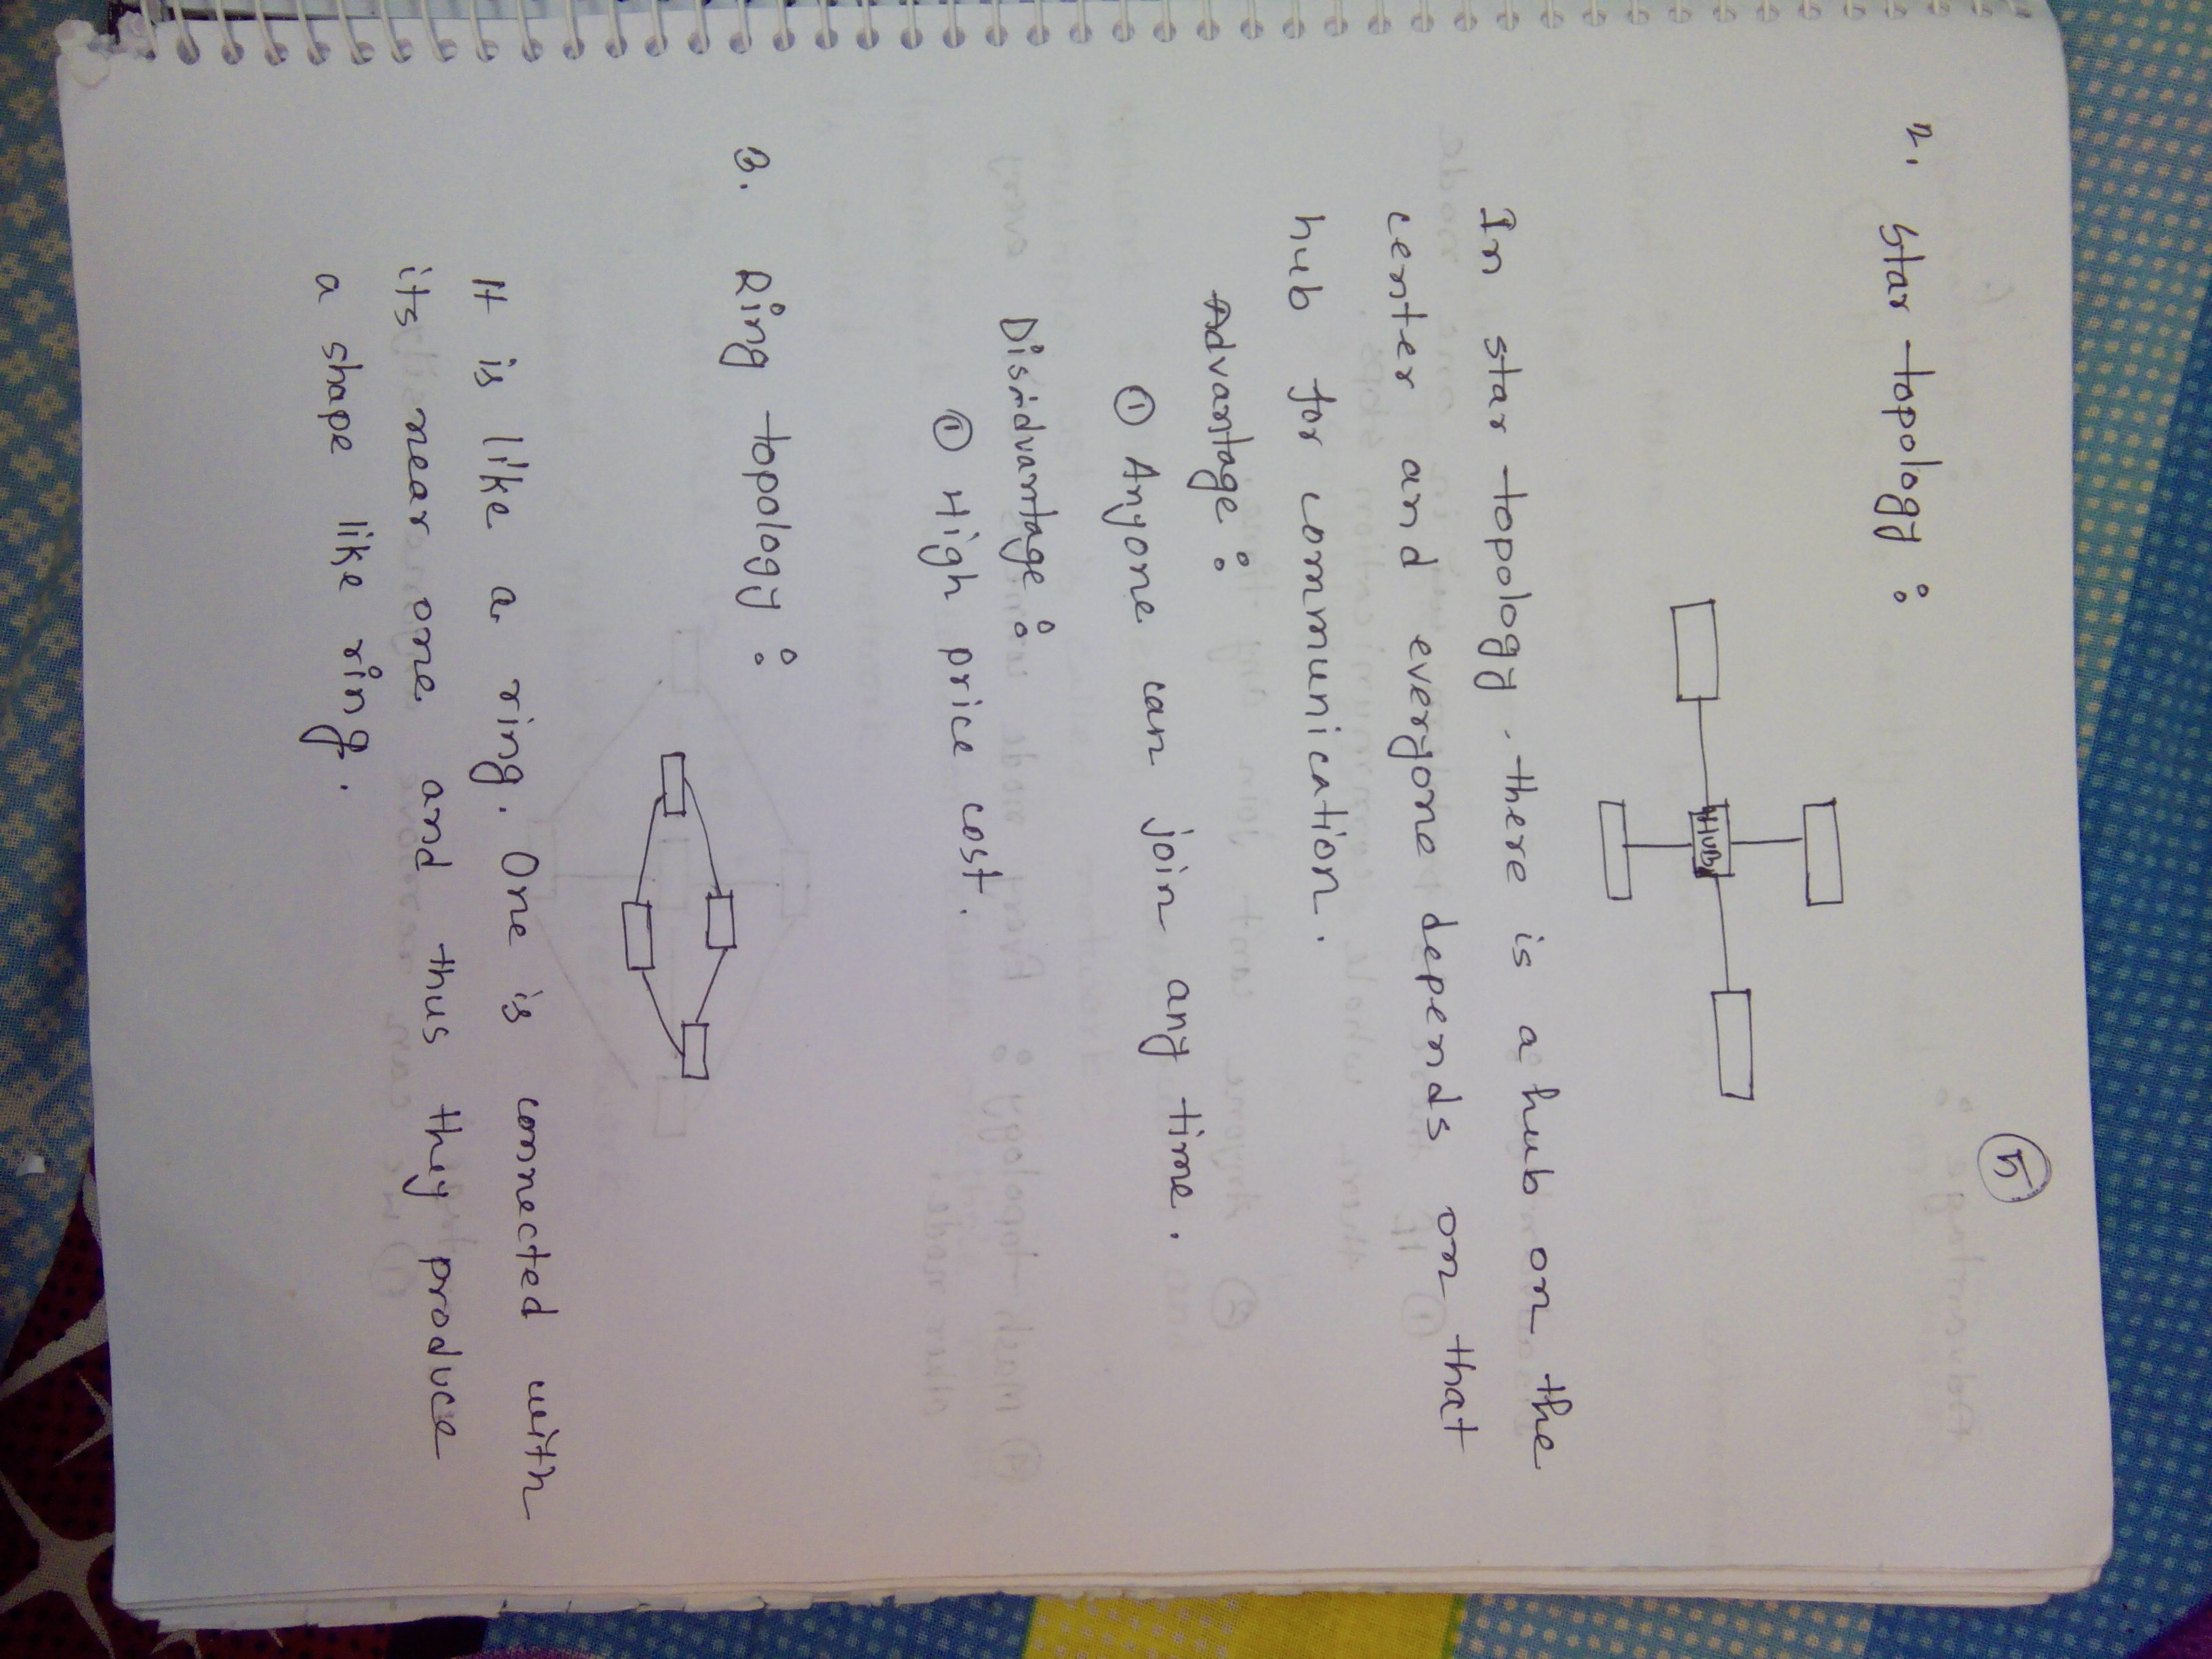 5
2. Star topology :
HUB
In star topology. there is a hub on the
center and everyone depends on that
hub for communication.
Advantage :
① Anyone can join any time.
Disadvantage :
① High price cost.
3. Ring topology :
It is like a ring. One is connected with
its near one and thus they produce
a shape like ring.